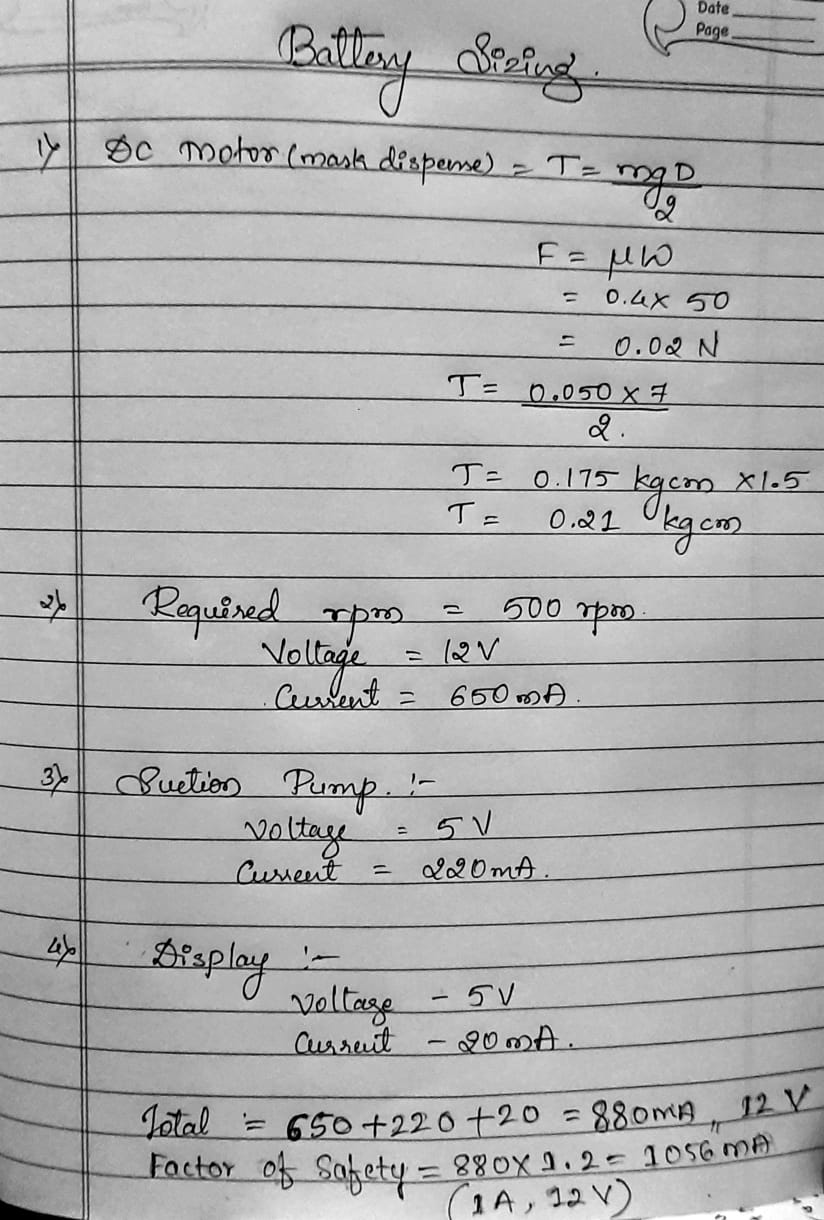 Date
Page
Battery Sizing.
1) DC motor (mask dispense) = T = mgD/2
F = μW
= 0.4 x 50
= 0.02 N
T = 0.050 x 7/2.
T = 0.175 kgcm x1.5
T = 0.21 kgcm
2) Required rpm = 500 rpm.
Voltage = 12V
Current = 650mA.
3) Suction Pump. :-
Voltage = 5V
Current = 220mA.
4) Display :-
Voltage - 5V
Current - 20mA.
Total = 650+220+20 = 880mA, 12V
Factor of Safety = 880X1.2 = 1056 mA
(1A, 12V)